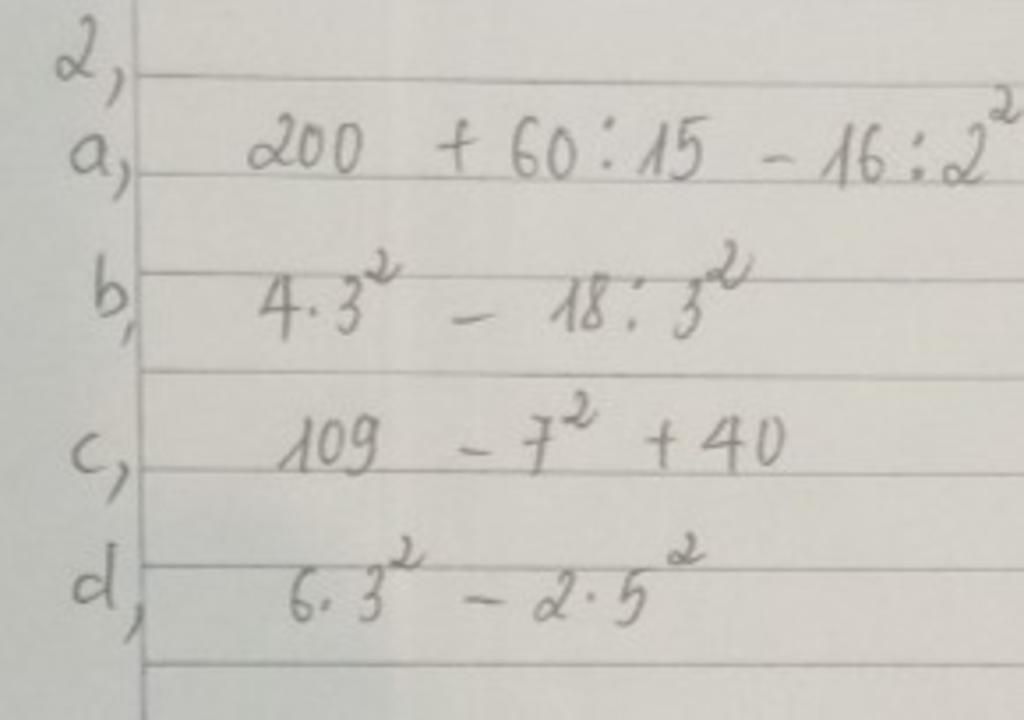 2,
a, 200 + 60 : 15 - 16 : 2²
b, 4 . 3² - 18 : 3²
c, 109 - 7² + 40
d, 6 . 3² - 2 . 5²